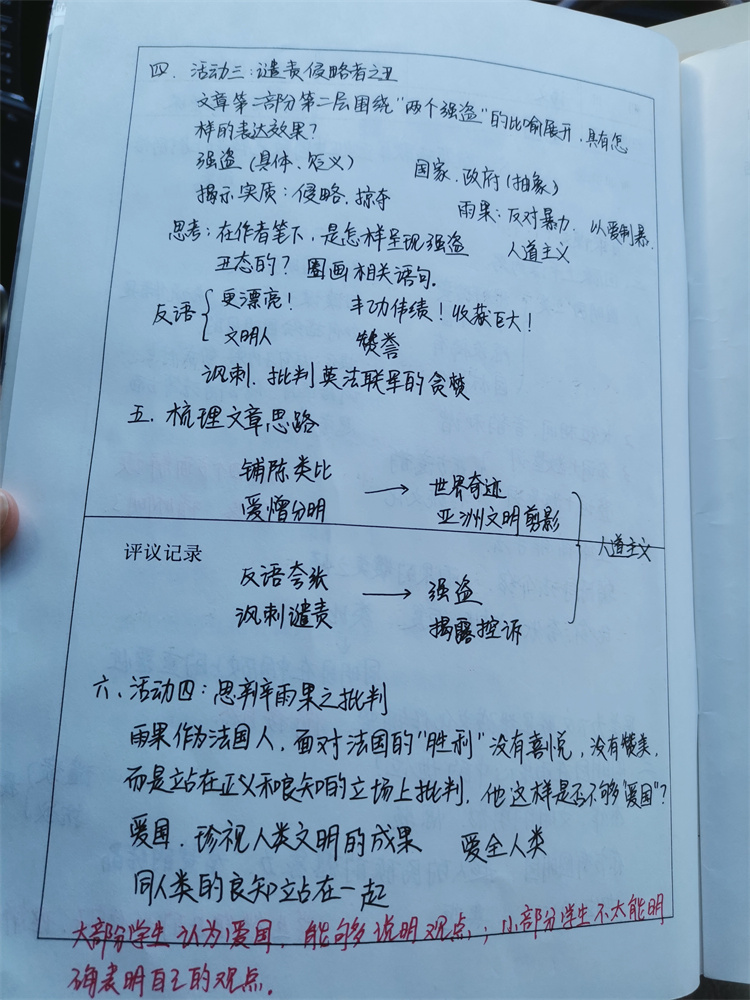 四. 活动三:谴责侵略者之丑
文章第二部分第二层围绕“两个强盗”的比喻展开,具有怎
样的表达效果?
强盗(具体、贬义) 国家、政府(抽象)
揭示实质:侵略、掠夺 雨果:反对暴力、以爱制暴、
思考:在作者笔下,是怎样呈现强盗 人道主义
丑态的?圈画相关语句。
反语 { 更漂亮! 丰功伟绩!收获巨大!
文明人 赞誉
讽刺、批判英法联军的贪婪
五、梳理文章思路
铺陈类比 → 世界奇迹
爱憎分明 亚洲文明剪影
评议记录 人道主义
反语夸张 → 强盗
讽刺谴责 揭露控诉
六、活动四:思辨雨果之批判
雨果作为法国人,面对法国的“胜利”没有喜悦,没有赞美,
而是站在正义和良知的立场上批判,他这样是否不够“爱国”?
爱国、珍视人类文明的成果 爱全人类
同人类的良知站在一起
大部分学生认为爱国,能够说明观点;小部分学生不太能明
确表明自己的观点。